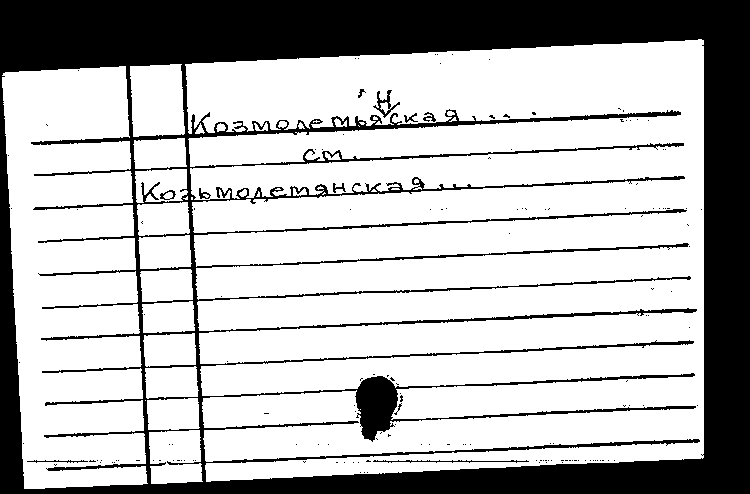 Козмодемьянская....
см.
Козьмодемянская...